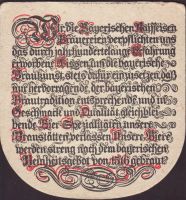 Wir die Bayerischen Raiffeisen
Brauereien verpflichten uns
das durch jahrhundertelange Erfahrung
erworbene Wissen um die bayerische
Braukunst, stets dafür einzusetzen, daß
nur hervorragende, der bayerischen
Brautradition entsprechende und in
Geschmack und Qualität gleichblei-
bende Bier-Spezialitäten unsere
Braustätten verlassen. Unsere Biere
werden streng nach dem bayerischen
Reinheitsgebot von 1516 gebraut